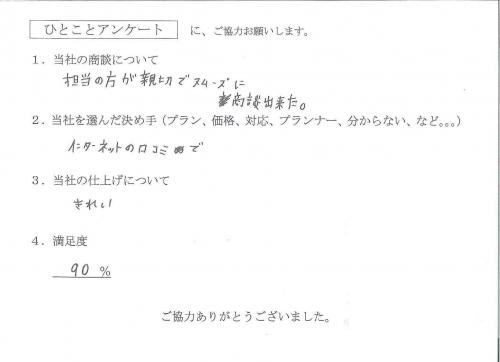 ひとことアンケート に、ご協力お願いします。
1．当社の商談について
担当の方が親切でスムーズに
商談出来た。
2．当社を選んだ決め手（プラン、価格、対応、プランナー、分からない、など。。。）
インターネットの口コミで
3．当社の仕上げについて
きれい
4．満足度
90 %
ご協力ありがとうございました。